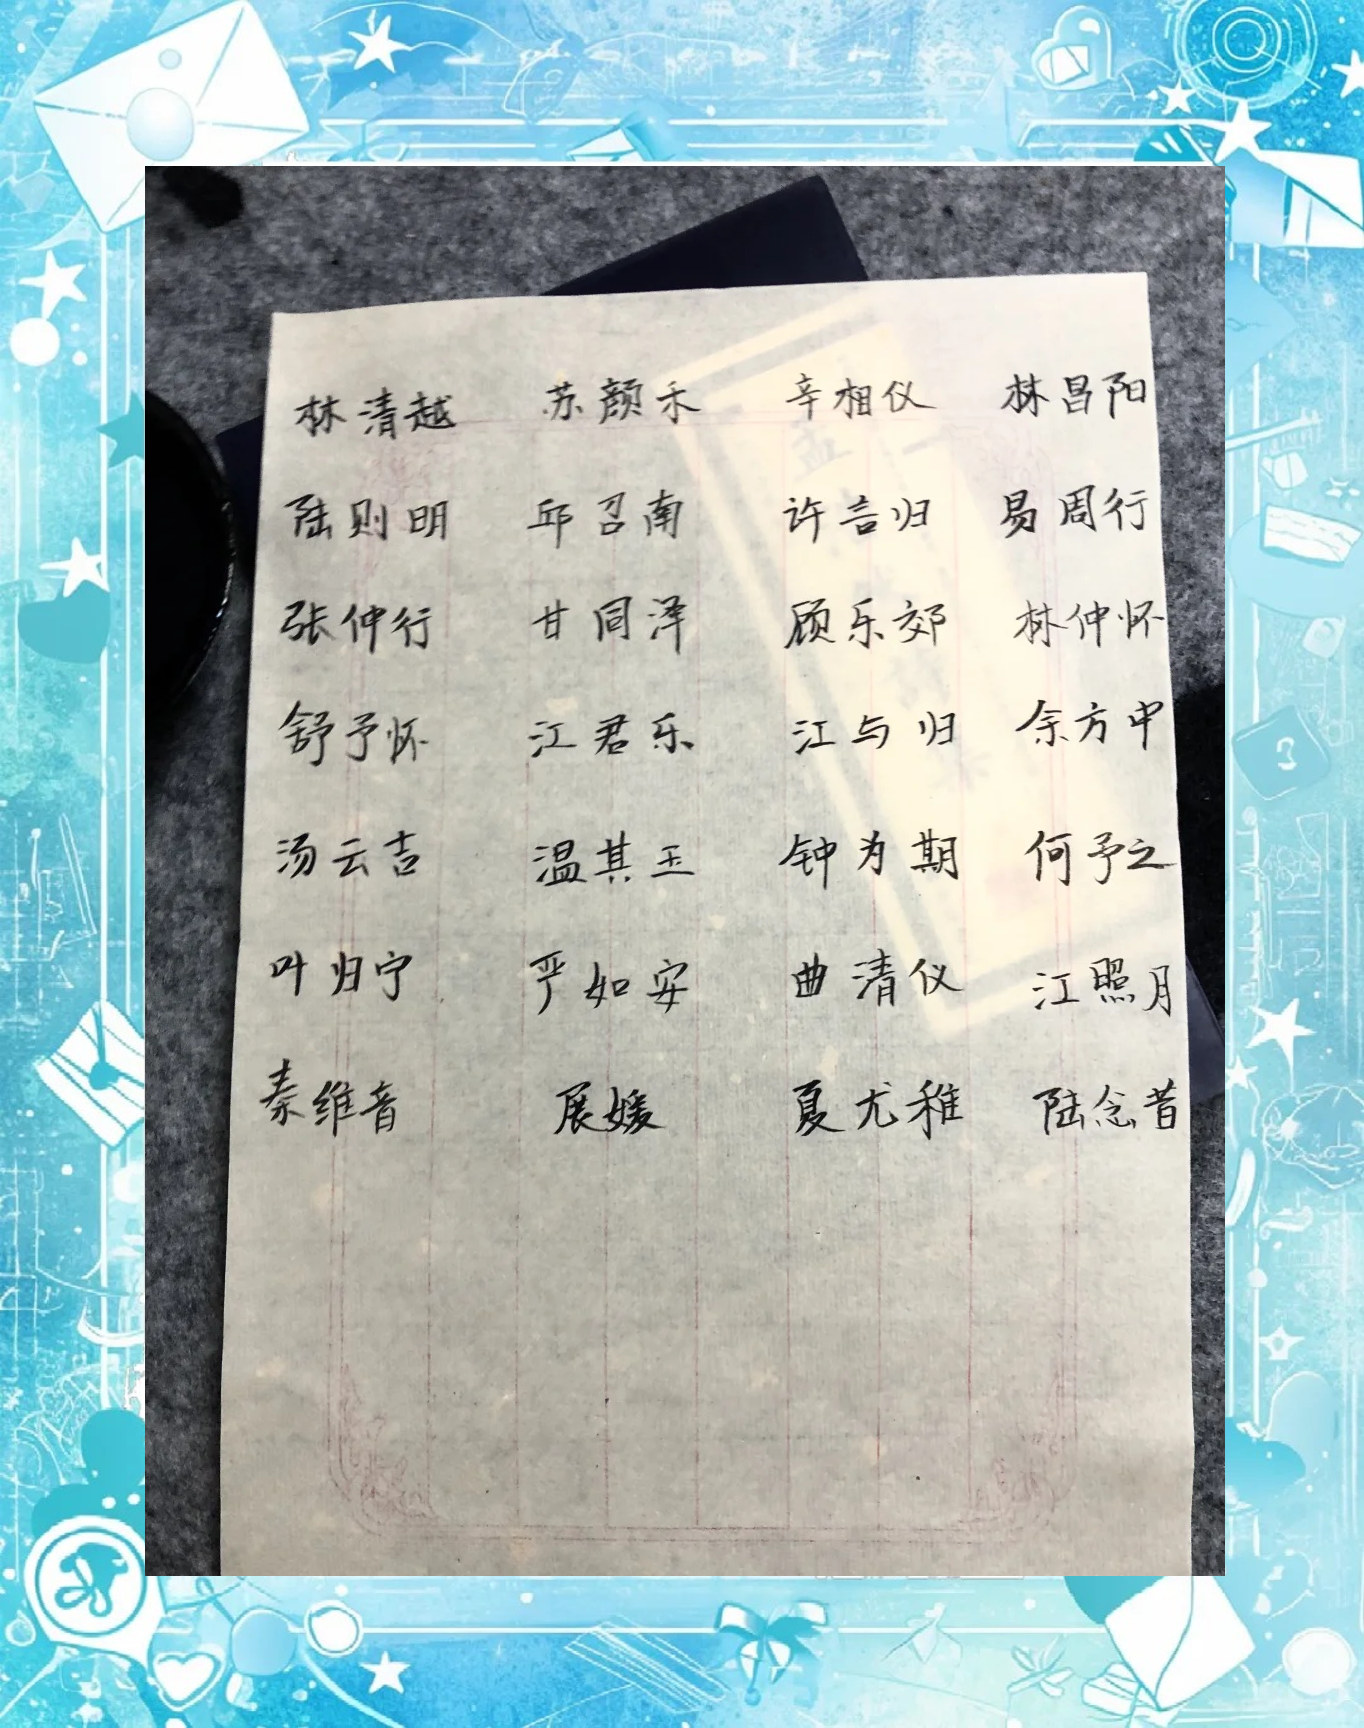 林清越 苏颜禾 辛相仪 林昌阳
陆则明 邱召南 许言归 易周行
张仲行 甘同泽 顾乐郊 林仲怀
舒予怀 江君乐 江与归 余方中
汤云吉 温其玉 钟为期 何予之
叶归宁 严如安 曲清仪 江照月
秦维音 展媛 夏尤稚 陆念昔